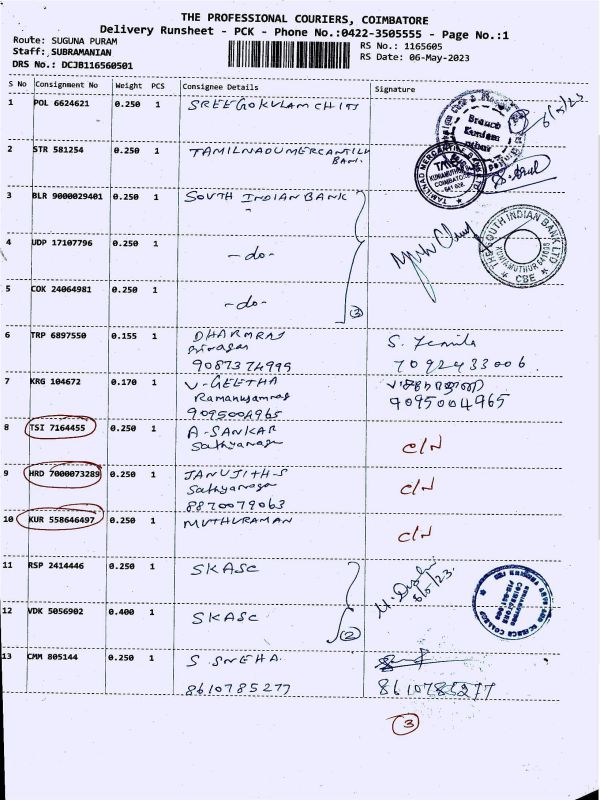 THE PROFESSIONAL COURIERS, COIMBATORE
Delivery Runsheet - PCK - Phone No.:0422-3505555 - Page No.:1
Route: SUGUNA PURAM
Staff: SUBRAMANIAN
DRS No.: DCJB116560501
RS No.: 1165605
RS Date: 06-May-2023
S No Consignment No Weight PCS Consignee Details Signature
1 POL 6624621 0.250 1 SREEGOKULAM CHITS
6/5/23
Branch
2 STR 581254 0.250 1 TAMILNADU MERCANTILE
BANK.
TAMILNAD MERCANTILE BANK LTD
KUNIAMUTHUR
COIMBATORE
3 BLR 9000029401 0.250 1 SOUTH INDIAN BANK
"
THE SOUTH INDIAN BANK LTD
KUNIAMUTHUR 641008
CBE
4 UDP 17107796 0.250 1 -do-
5 COK 24064981 0.250 1 -do-
3
6 TRP 6897550 0.155 1 DHARMRAJ
9087374995
S.
7092433006.
7 KRG 104672 0.170 1 V-GEETHA
9095004965
9095004965
8 TSI 7164455 0.250 1 A-SANKAR
Sathyanagar
C/N
9 HRD 7000073289 0.250 1 JANUJITH-S
Sathyanagar
8870079063
C/N
10 KUR 558646497 0.250 1 MUTHURAMAN
C/N
11 RSP 2414446 0.250 1 SKASC
6/5/23
12 VDK 5056902 0.400 1 SKASC
2
13 CMM 805144 0.250 1 S SNEHA.
8610785277
8610785277
3